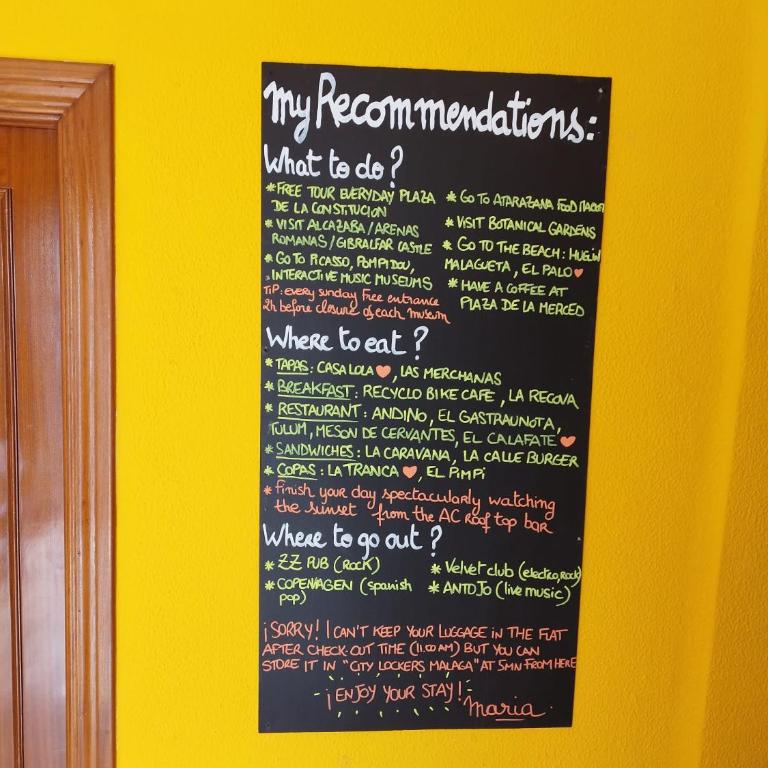 my Recommendations:
What to do?
*FREE TOUR EVERYDAY PLAZA
DE LA CONSTITUCION
*VISIT ALCAZABA/ARENAS
ROMANAS/GIBRALFAR CASTLE
*GO TO PICASSO, POMPIDOU,
INTERACTIVE MUSIC MUSEUMS
TIP: every sunday free entrance
2h before closure of each museum
*GO TO ATARAZANA FOOD MARKET
*VISIT BOTANICAL GARDENS
*GO TO THE BEACH: HUELIN
MALAGUETA, EL PALO♥
*HAVE A COFFEE AT
PLAZA DE LA MERCED
Where to eat?
*TAPAS: CASA LOLA♥, LAS MERCHANAS
*BREAKFAST: RECYCLO BIKE CAFE, LA RECOVA
*RESTAURANT: ANDINO, EL GASTRAUNOTA,
TULUM, MESON DE CERVANTES, EL CALAFATE♥
*SANDWICHES: LA CARAVANA, LA CALLE BURGER
*COPAS: LA TRANCA♥, EL PIMPI
*Finish your day spectacularly watching
the sunset from the AC Roof top bar
Where to go out?
*ZZ PUB (ROCK)
*COPENHAGEN (spanish
pop)
*Velvet club (electro, rock)
*ANTOJO (live music)
¡SORRY! I CAN'T KEEP YOUR LUGGAGE IN THE FLAT
AFTER CHECK-OUT TIME (11.00 AM) BUT YOU CAN
STORE IT IN "CITY LOCKERS MALAGA" AT 5MN FROM HERE
¡ENJOY YOUR STAY!
Maria